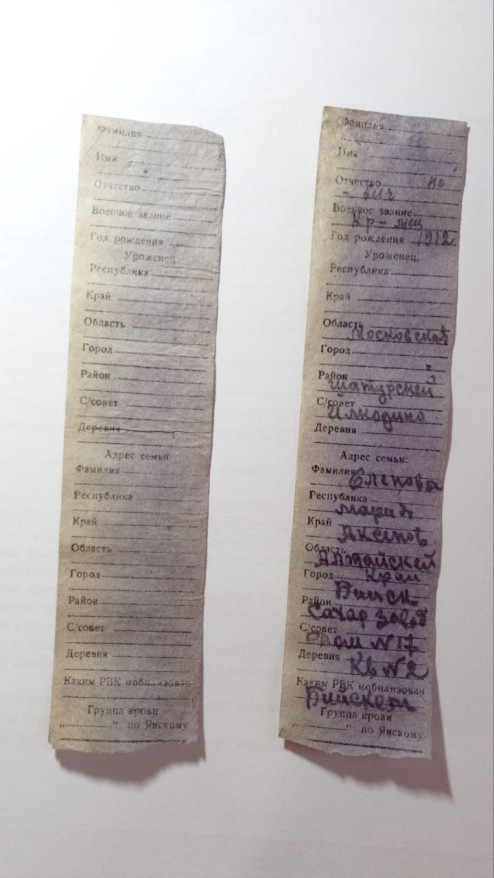 Фамилия
Имя
Отчество
Военное звание
Год рождения
Уроженец
Республика
Край
Область
Город
Район
С/совет
Деревня
Адрес семьи:
Фамилия
Республика
Край
Область
Город
Район
С/совет
Деревня
Каким РВК мобилизован
Группа крови
„ “ по Янскому
Фамилия
Имя
Отчество
Военное звание
Кр-
Год рождения 1912
Уроженец
Республика
Край
Область
Московская
Город
Район
Шатурский
С/совет
Деревня
Адрес семьи:
Фамилия
Республика
Мария
Край
Область
Алтайский
Край
Город
Бийск
Район
Сахар завод
С/совет
Дом №17
Деревня
Кв №2
Каким РВК мобилизован
Бийским
Группа крови
„ “ по Янскому